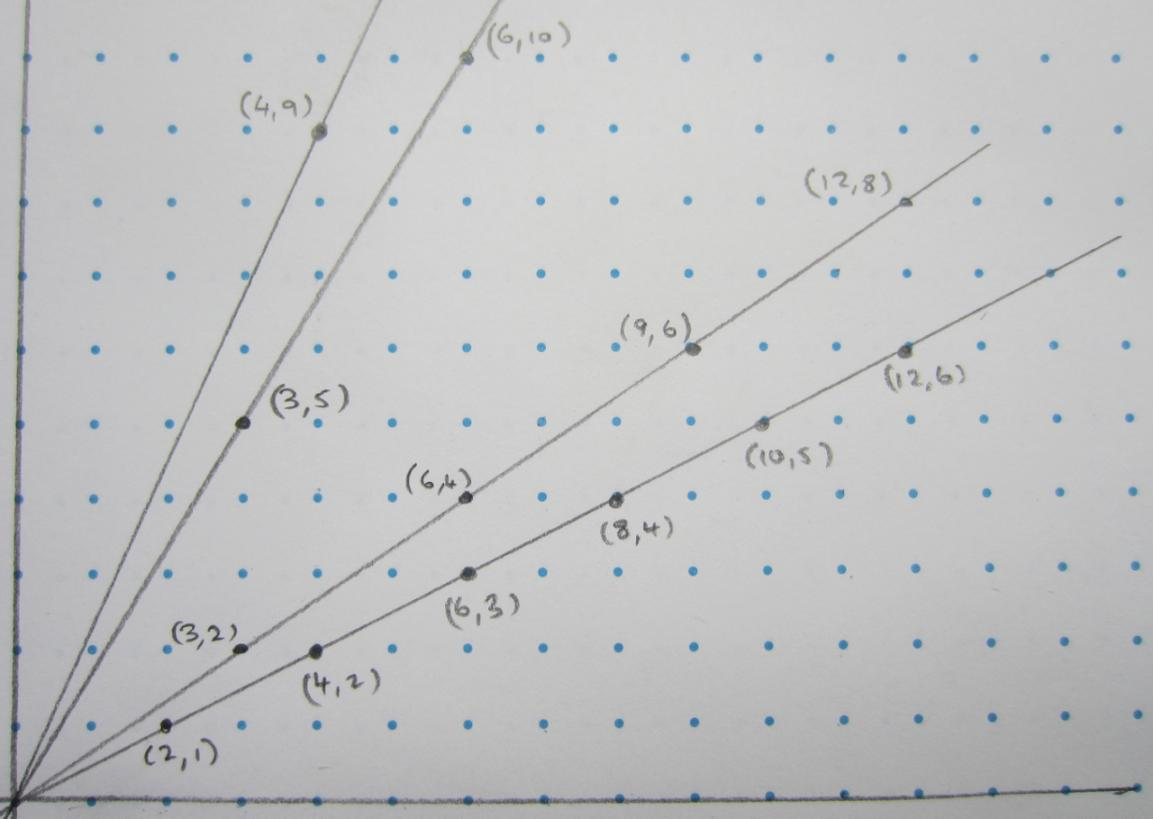 (6,10)
(4,9)
(12,8)
(9,6)
(12,6)
(3,5)
(10,5)
(6,4)
(8,4)
(6,3)
(3,2)
(4,2)
(2,1)